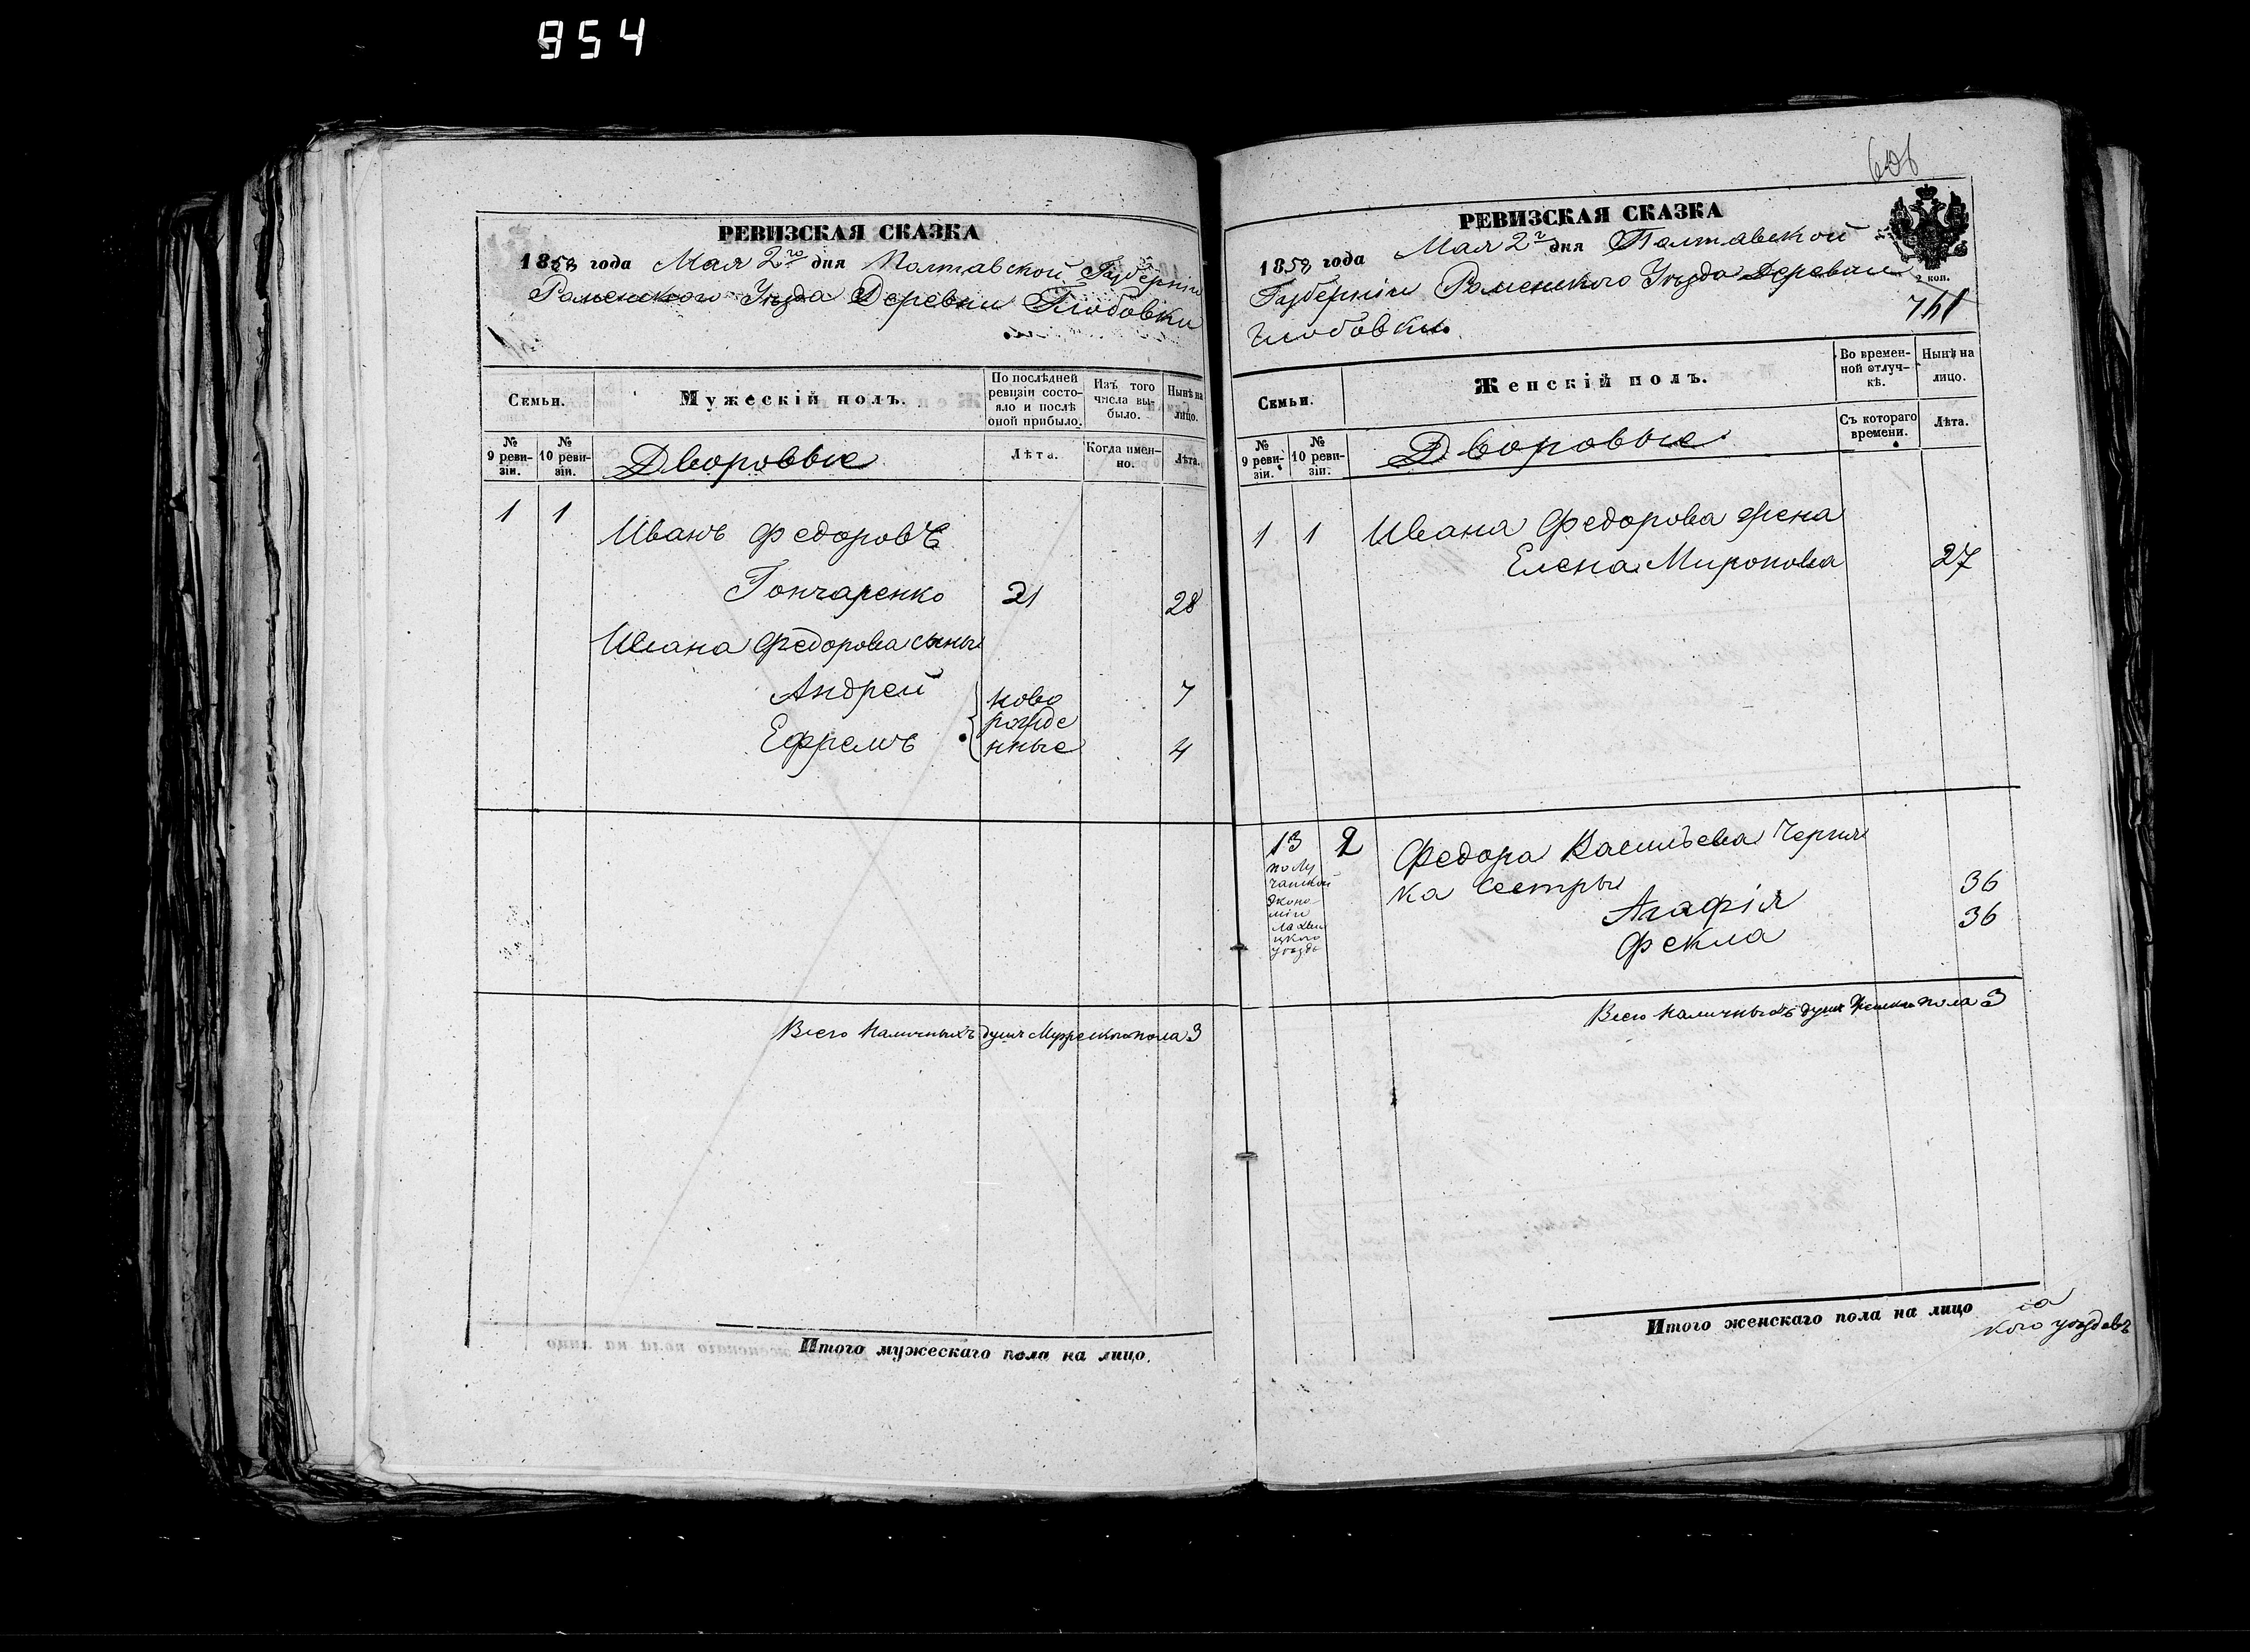 954
РЕВИЗСКАЯ СКАЗКА
1858 года Мая 2го дня Полтавской Губерніи
Роменского Уезда Деревни Глобовки
Семьи.
Мужескій полъ.
По послѣдней ревизіи состояло и послѣ оной прибыло.
Изъ того числа выбыло.
Нынѣ на лицо.
№ 9 ревизіи.
№ 10 ревизіи.
Дворовые
Лѣта.
Когда именно.
Лѣта.
1 1
Иванъ Федоровъ
Гончаренко 21 28
Ивана Федорова сыны
Андрей 7
Ефремъ 4
ново
рожде
нные
Всего наличныхъ душъ Мужеского пола 3
Итого мужескаго пола на лицо.
606
РЕВИЗСКАЯ СКАЗКА
1858 года Мая 2г дня Полтавской
2 коп.
Губерніи Роменского Уезда Деревни
Глобовки.
741
Семьи.
Женскій полъ.
Во временной отлучкѣ.
Нынѣ на лицо.
№ 9 ревизіи.
№ 10 ревизіи.
Дворовые
Съ котораго времени.
Лѣта.
1 1 Ивана Федорова жена
Елена Миронова 27
13 2 Федора Васильева Черня
ка сестры
Агафія 36
Фекла 36
по Лу
чанской
Эконо
міи
Лохви
цкого
уезда
Всего наличныхъ душъ Женска пола 3
Итого женскаго пола на лицо
кого уездовъ